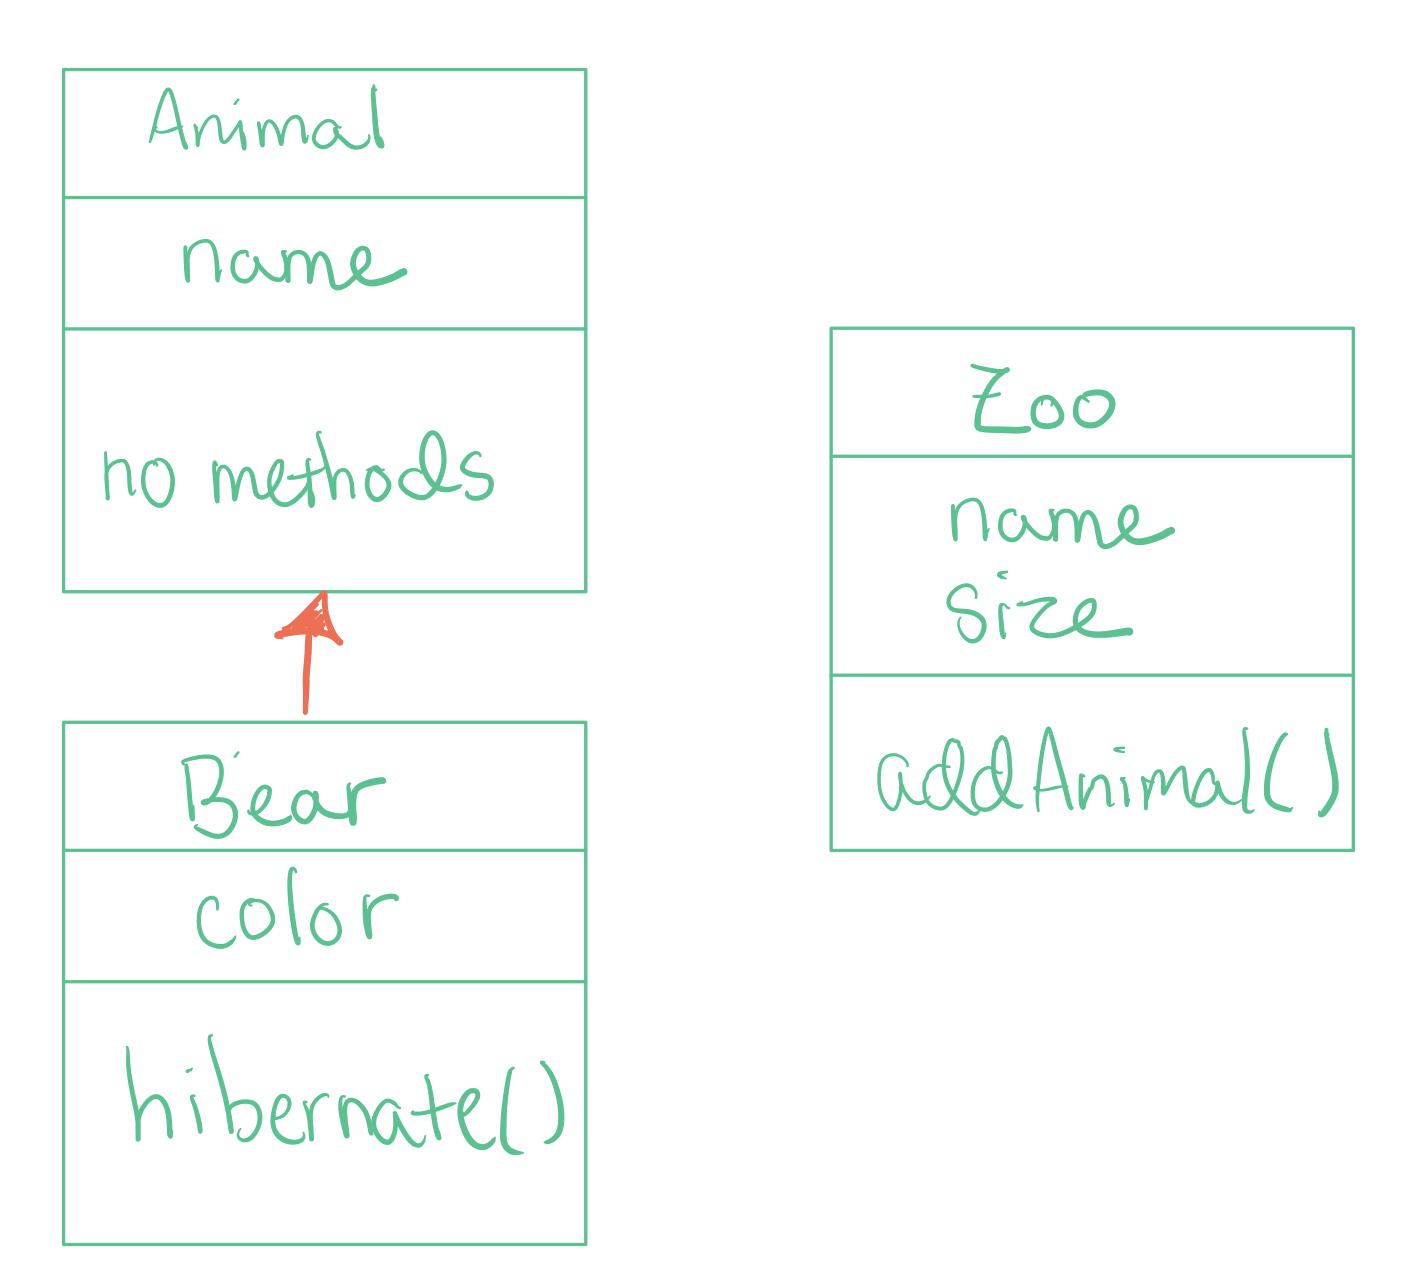 Animal
name
no methods
Bear
color
hibernate()
Zoo
name
size
addAnimal()